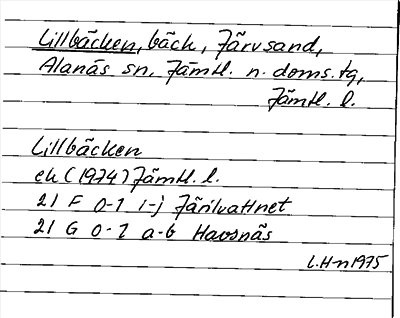 Lillbäcken, bäck, Järvsand,
Alanäs sn, Jämtl. n. doms. tg,
Jämtl. l.
Lillbäcken
ek (1974) Jämtl. l.
21 F 0-1 i-j Järilvattnet
21 G 0-1 a-b Havsnäs
L.H-n 1975